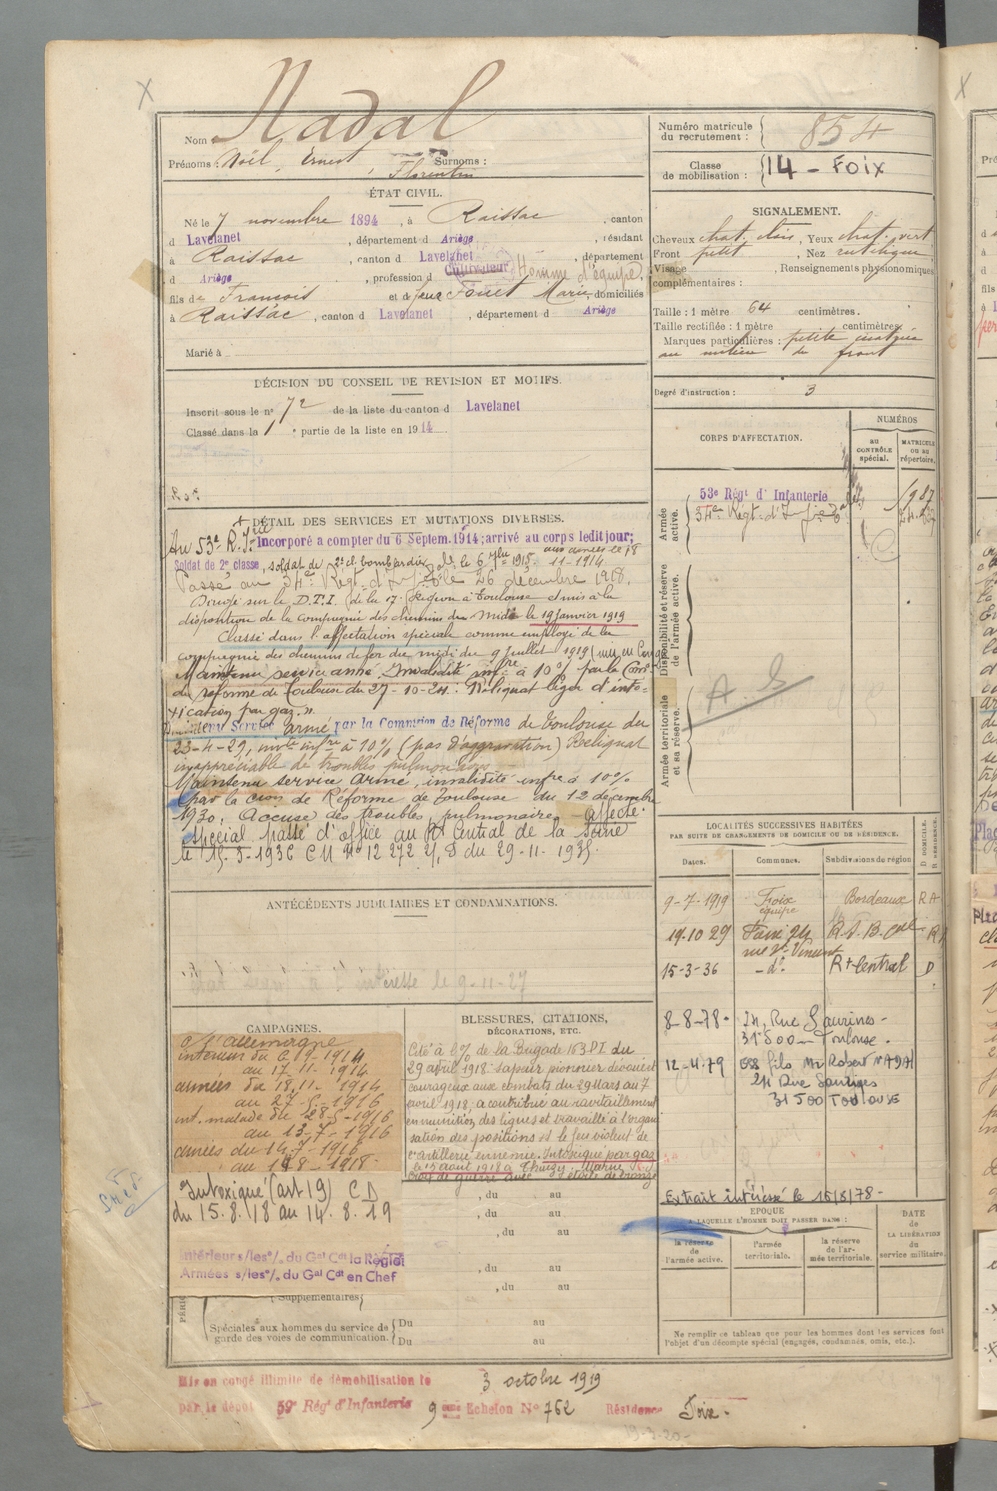 Nadal
Nom
Prénoms : Noël, Ernest, Florentin Surnoms :
ÉTAT CIVIL.
Né le 7 novembre 1894, à Raissac, canton
d Lavelanet, département d Ariège, résidant
à Raissac, canton d Lavelanet, département
d Ariège, profession d Cultivateur Homme d'équipe.
fils de François et d Marie domiciliés
à Raissac, canton d Lavelanet, département d Ariège
Marié à
DÉCISION DU CONSEIL DE REVISION ET MOTIFS.
Inscrit sous le n° 72 de la liste du canton d Lavelanet
Classé dans la 1 partie de la liste en 1914
DÉTAIL DES SERVICES ET MUTATIONS DIVERSES.
Au 53e R.I. Incorporé à compter du 6 Septem. 1914; arrivé au corps ledit jour;
Soldat de 2e classe, soldat de 2e cl. bombardier le 6 1915. aux armées le 18-11-1914
Passé au 34e Régt d'Infie le 26 décembre 1918.
Dirigé sur le D.T.I. de la 17e Région à Toulouse et mis à la
disposition de la compagnie des chemins du Midi le 19 janvier 1919
Classé dans l'affectation spéciale comme employé de la
compagnie des chemins de fer du midi du 9 juillet 1919
Maintenu service armé. Invalidité infre à 10% par la Comon
de réforme de Toulouse du 27-10-24: "Reliquat léger d'into-
xication par gaz."
Maintenu Service armé par la Commission de Réforme de Toulouse du
23-4-29, invté infre à 10% (pas d'aggravation) Reliquat
inappréciable de troubles pulmonaires
Maintenu service armé, invalidité infre à 10%
par la Cion de Réforme de Toulouse du 12 décembre
1930; Accuse des troubles pulmonaires. Affecté
spécial passé d'office au Rt Central de la Seine
le 15-3-1936 CM No 12 272 2/S du 29-11-1935.
ANTÉCÉDENTS JUDICIAIRES ET CONDAMNATIONS.
à l'intéressé le 9-11-27
CAMPAGNES.
c/ l'allemagne
intérieur du 6-9-1914
au 17.11.1914
armées du 18.11.1914
au 27-5-1916
int. malade du 28-5-1916
au 13-7-1916
armées du 14.7-1916
au 14 8-1918
Intoxiqué (art 19) CD
du 15.8.18 au 14.8.19
Intérieur s/les o/. du Gal Cdt la Région
Armées s/les o/. du Gal Cdt en Chef
Supplémentaires
Spéciales aux hommes du service de garde des voies de communication.
Du au
Du au
BLESSURES, CITATIONS,
DÉCORATIONS, ETC.
Cité à l'O/. de la Brigade 163 D.I. du
29 avril 1918: sapeur pionnier dévoué et
courageux aux combats du 29 Mars au 7
avril 1918, a contribué au ravitaillement
en munitions des lignes et travaillé à l'organi
sation des positions et le feu violent de
l'artillerie ennemie. Intoxiqué par gaz
le 15 août 1918 à Thuizy, Marne
Croix de guerre avec étoile de bronze
, du au
, du au
, du au
, du au
, du au
Numéro matricule du recrutement : 854
Classe de mobilisation : 14 - FOIX
SIGNALEMENT.
Cheveux chat. clair, Yeux chat. vert
Front petit, Nez rectiligne
Visage , Renseignements physionomiques
complémentaires :
Taille : 1 mètre 64 centimètres.
Taille rectifiée : 1 mètre centimètres.
Marques particulières : petite cicatrice
au milieu du front
Degré d'instruction : 3
CORPS D'AFFECTATION.
NUMÉROS
au CONTRÔLE spécial.
MATRICULE OU AU répertoire.
Armée active.
53e Régt d'Infanterie
34e Régt d'Infie
Disponibilité et réserve de l'armée active.
A. S
Armée territoriale et sa réserve.
LOCALITÉS SUCCESSIVES HABITÉES
PAR SUITE DE CHANGEMENTS DE DOMICILE OU DE RÉSIDENCE.
Dates. Communes. Subdivisions de région
D DOMICILE. R RÉSIDENCE.
9-7-1919 Foix équipe Bordeaux R A
19.10 29 rue St Vincent
15-3-36 - do - Rt Central D
8-8-78 - 24, Rue Saurines -
31500 - Toulouse.
12-4-79 ses fils Mr Robert NADAL
24 Rue Saurines
31500 TOULOUSE
Extrait intéressé le 15/8/78 -
EPOQUE
A LAQUELLE L'HOMME DOIT PASSER DANS :
la réserve de l'armée active.
l'armée territoriale.
la réserve de l'armée territoriale.
DATE de LA LIBÉRATION du service militaire.
Ne remplir ce tableau que pour les hommes dont les services font
l'objet d'un décompte spécial (engagés, condamnés, omis, etc.).
Mis en congé illimité de démobilisation le 3 octobre 1919
par le dépôt 59e Régt d'Infanterie 9 eme Echelon No 762 Résidence Foix.
19-3-20-